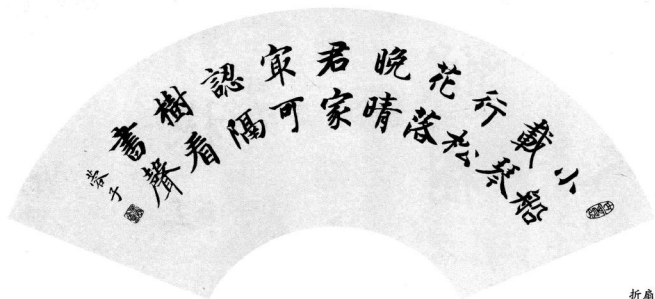 小船
載琴
行松
花落
晚晴
君家
冣可
認隔
樹看
書聲
蓉子
折扇